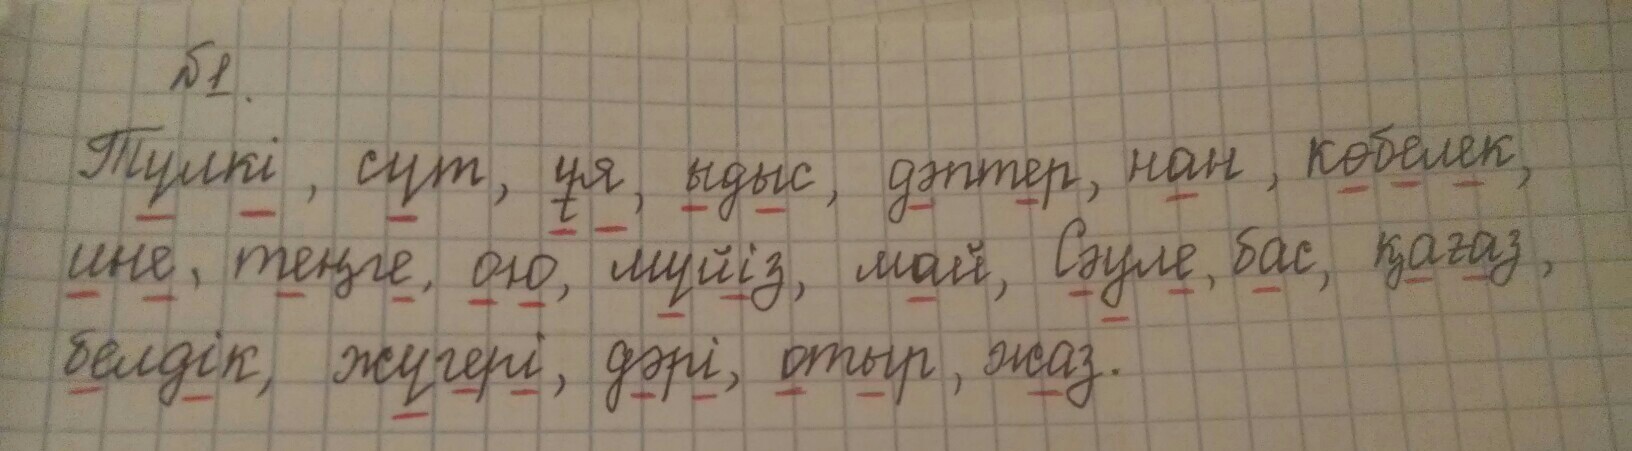 №1.
Түлкі, сүт, ұя, ыдыс, дәптер, нан, көбелек,
ине, теңге, ою, мүйіз, май, Сәуле, бас, қағаз,
белдік, жүгері, дәрі, отыр, жаз.